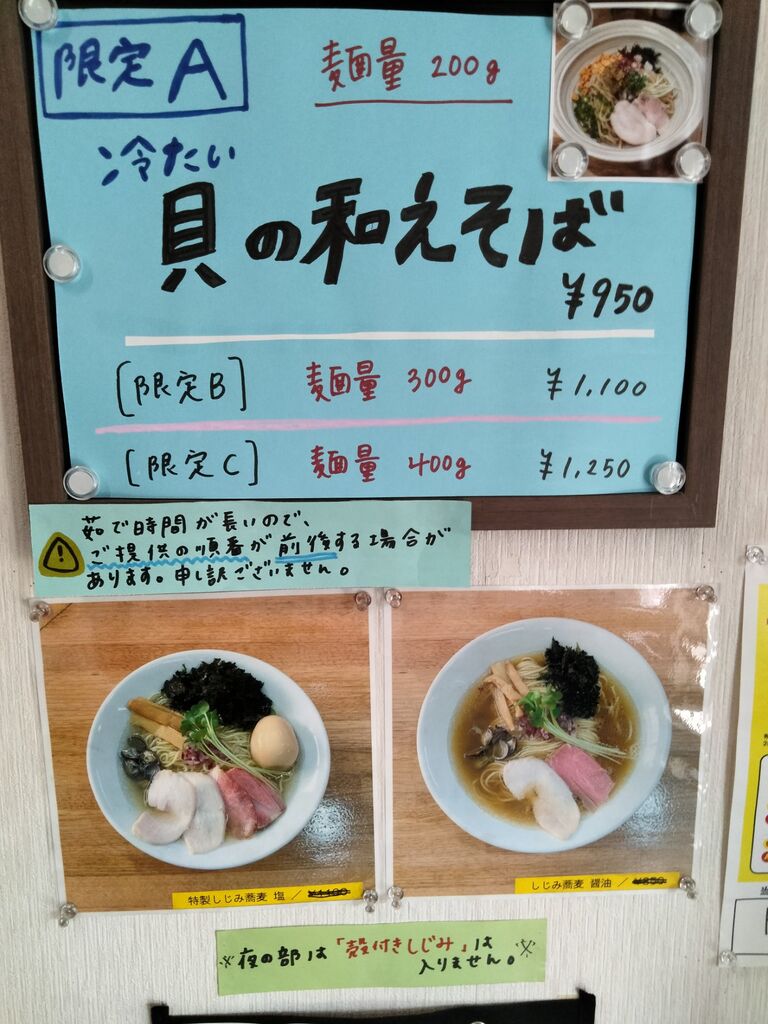 限定A
麺量 200g
冷たい
貝の和えそば
¥950
[限定B] 麺量 300g ¥1,100
[限定C] 麺量 400g ¥1,250
茹で時間が長いので、
ご提供の順番が前後する場合が
あります。申し訳ございません。
特製しじみ蕎麦 塩 / ¥1100
しじみ蕎麦 醤油 / ¥850
※夜の部は「殻付きしじみ」は※
入りません。